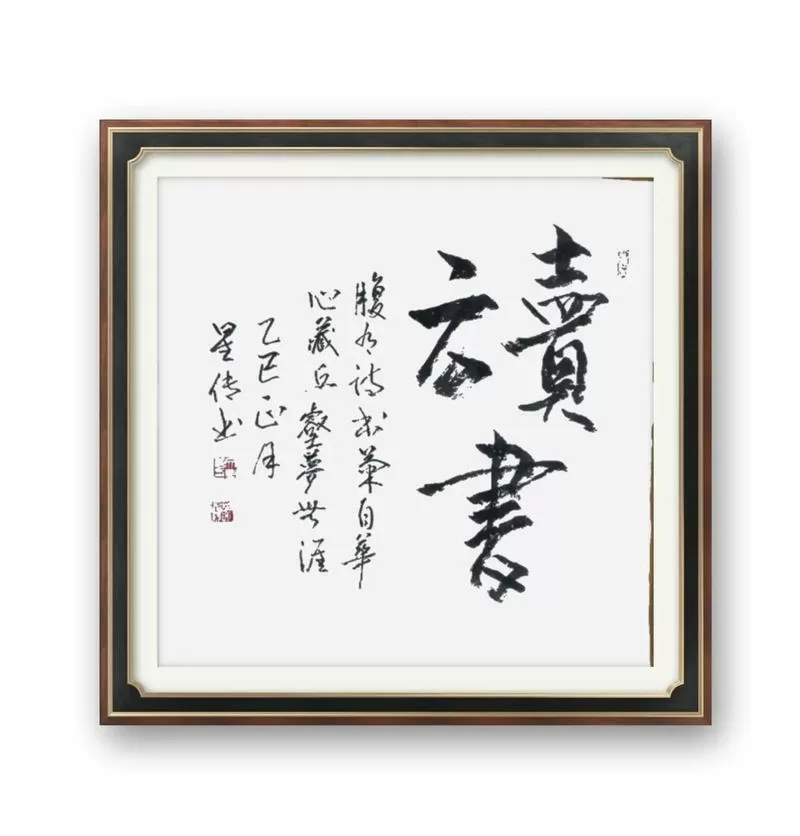 讀書
腹有詩书氣自華
心藏丘壑夢無涯
乙巳正月
星传书